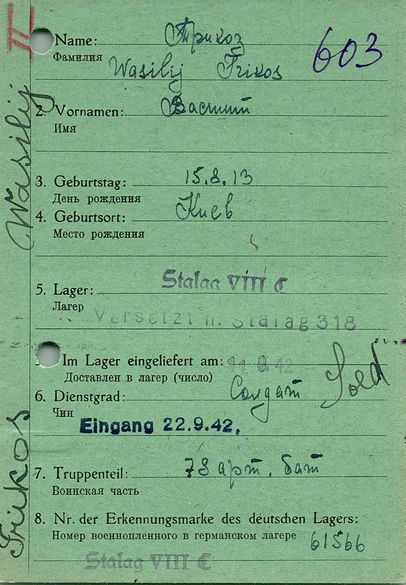 II
Name: Трикоз
603
Фамилия
Wasilij Trikos
2. Vornamen: Василий
Имя
3. Geburtstag: 15.8.13
День рождения
4. Geburtsort: Киев
Место рождения
5. Lager: Stalag VIII C
Лагерь
Versetzt n. Stalag 318
Im Lager eingeliefert am: 9.42
Доставлен в лагерь (число)
6. Dienstgrad: Солдат Sold
Чин
Eingang 22.9.42.
7. Truppenteil: 78 арт. бат
Воинская часть
8. Nr. der Erkennungsmarke des deutschen Lagers:
Номер военнопленного в германском лагере 61566
Stalag VIII C
Trikos Wasilij